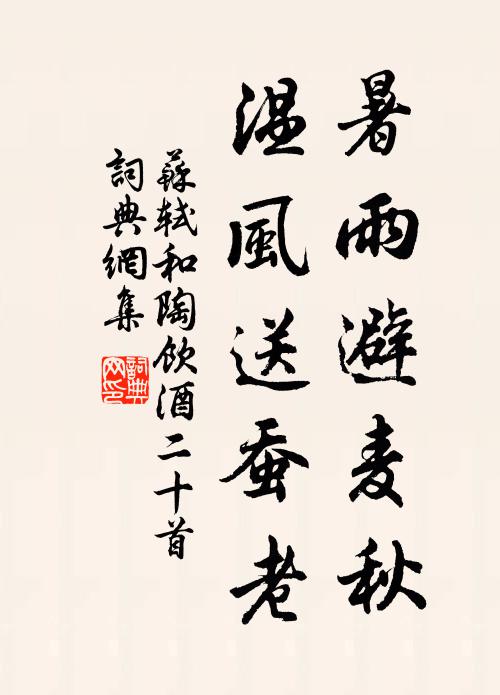 暑雨避麦秋
温風送蚕老
蘇軾和陶飲酒二十首
詞典網集
詞典网印